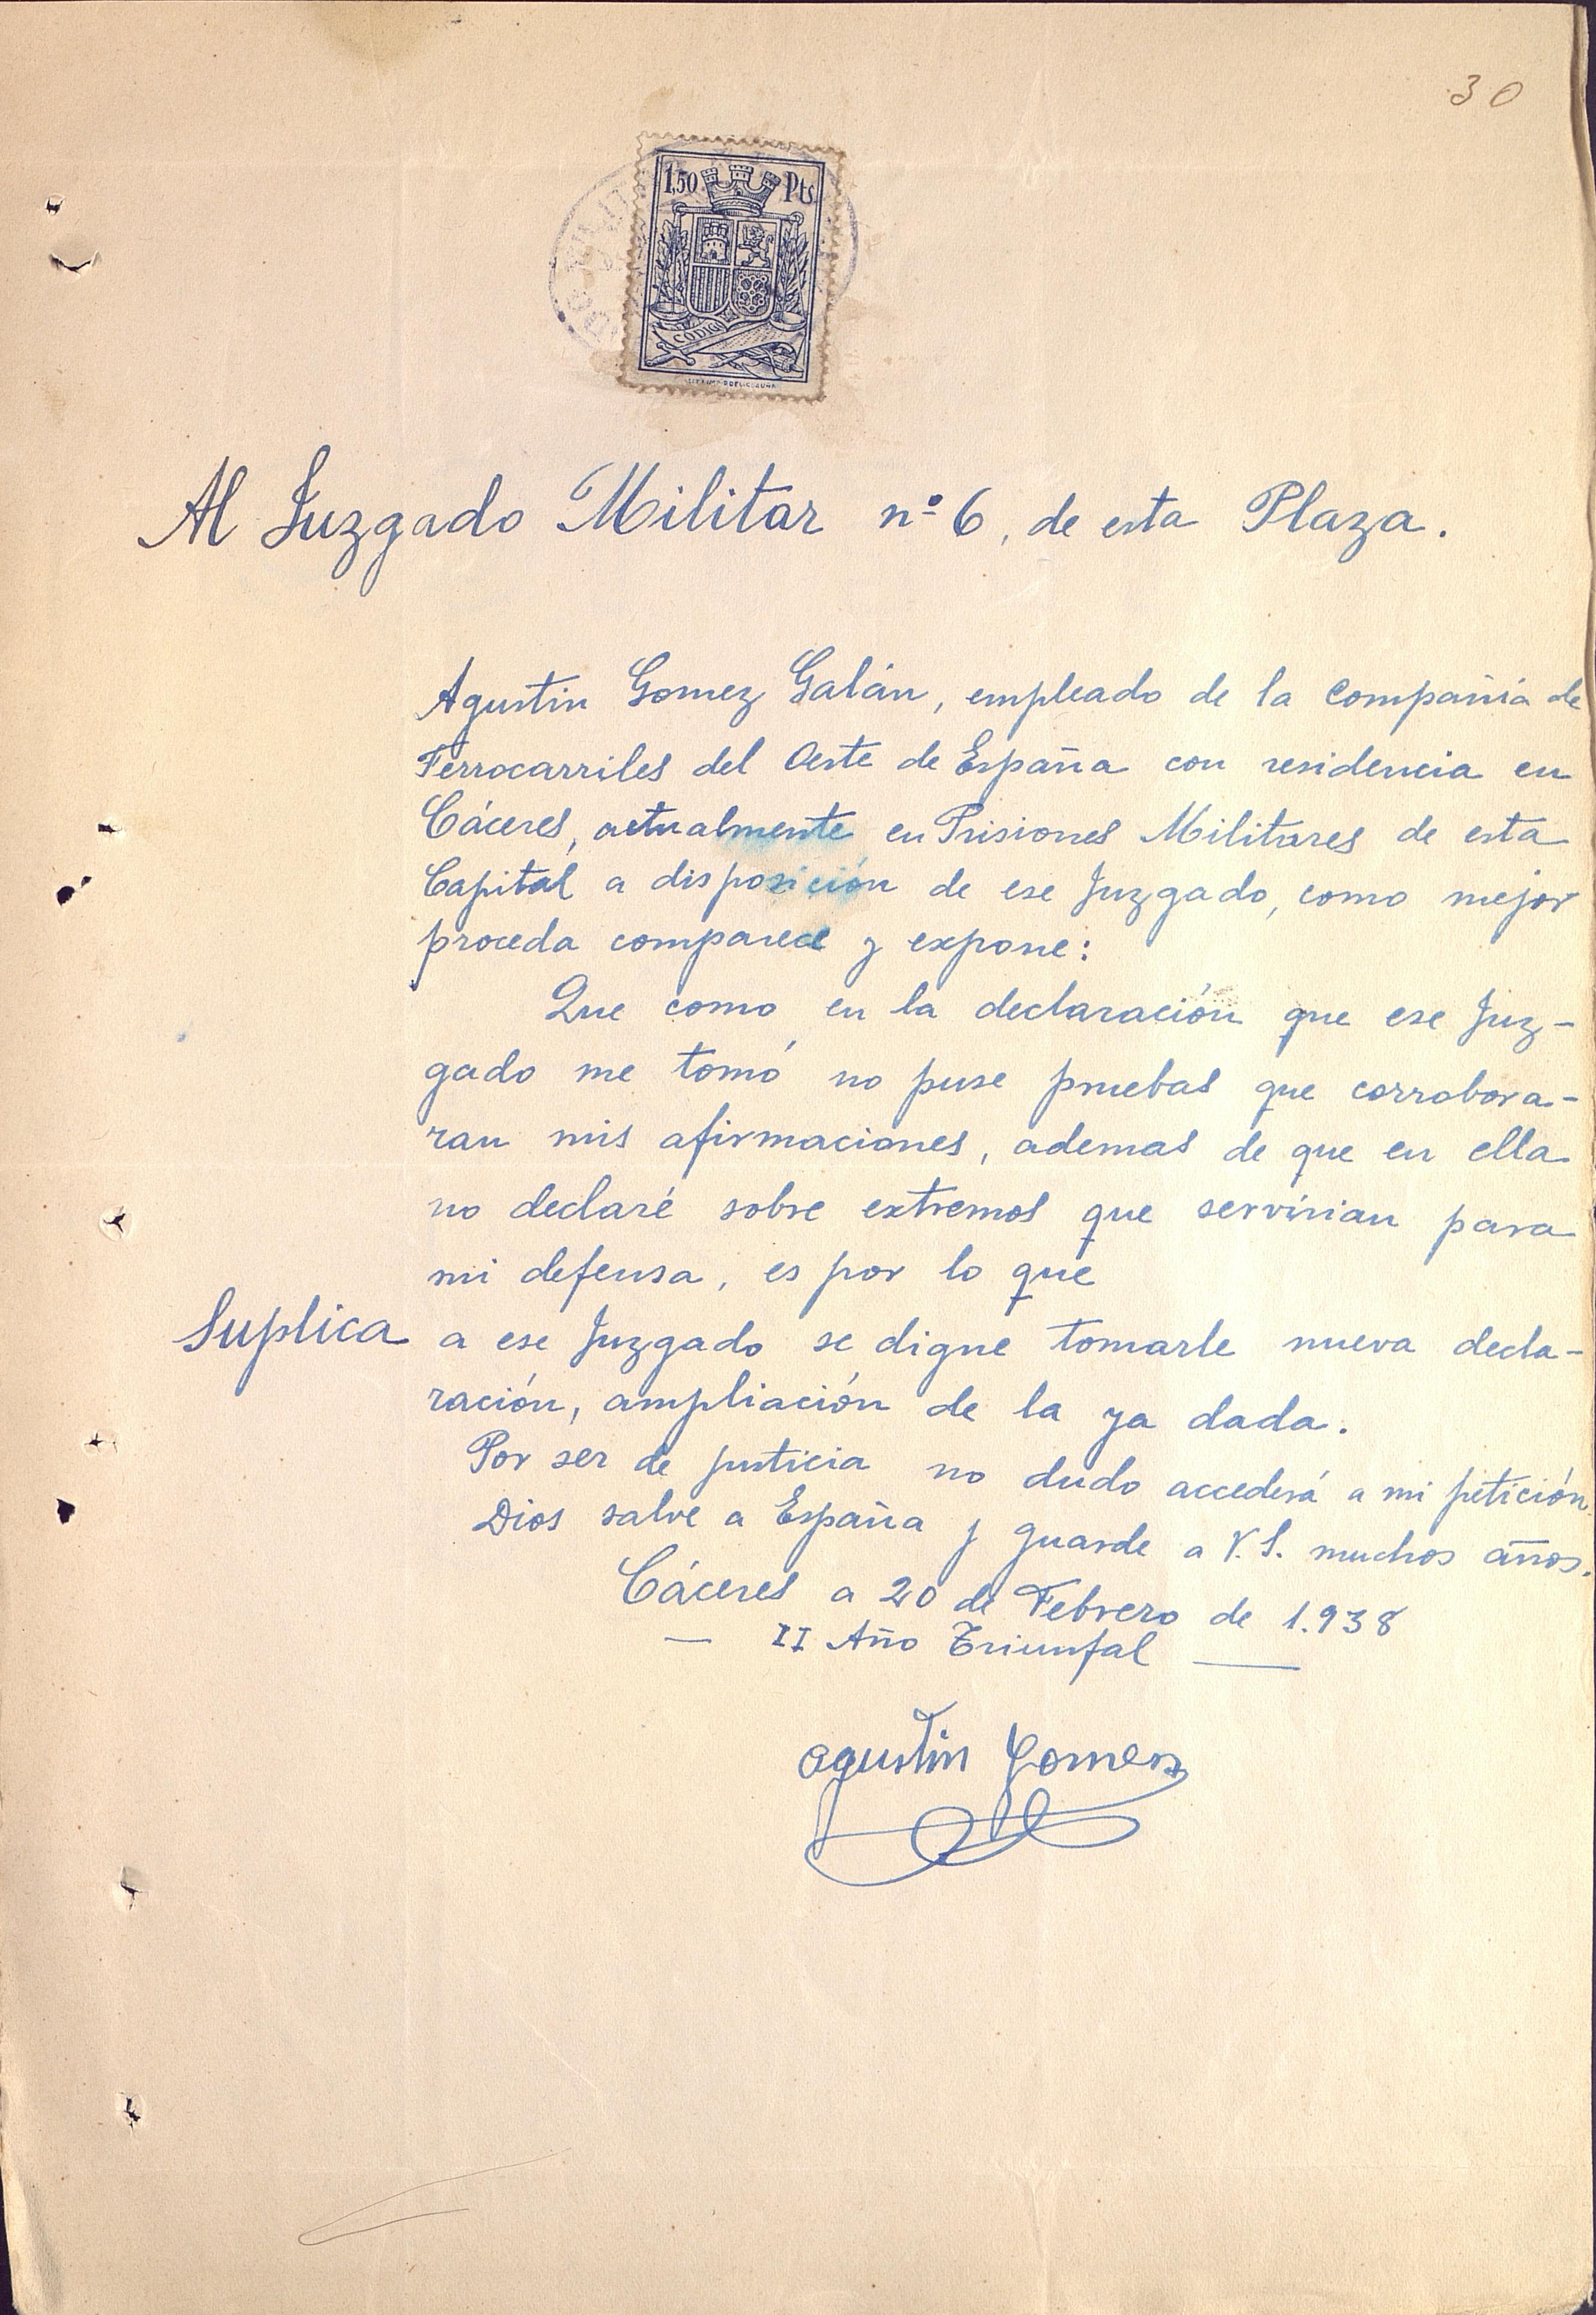 30
1,50 Pts
CODIGO
Al Juzgado Militar nº 6, de esta Plaza.
Agustin Gomez Galán, empleado de la Compañia de
Ferrocarriles del Oeste de España con residencia en
Cáceres, actualmente en Prisiones Militares de esta
Capital a disposición de ese Juzgado, como mejor
proceda comparece y expone:
Que como en la declaración que ese Juz-
gado me tomó no puse pruebas que corrobora-
ran mis afirmaciones, ademas de que en ella
no declaré sobre extremos que servirian para
mi defensa, es por lo que
Suplica a ese Juzgado se digne tomarle nueva decla-
ración, ampliación de la ya dada.
Por ser de justicia no dudo accederá a mi petición.
Dios salve a España y guarde a V.S. muchos años.
Cáceres a 20 de Febrero de 1.938
— II Año Triunfal —
Agustin Gomez